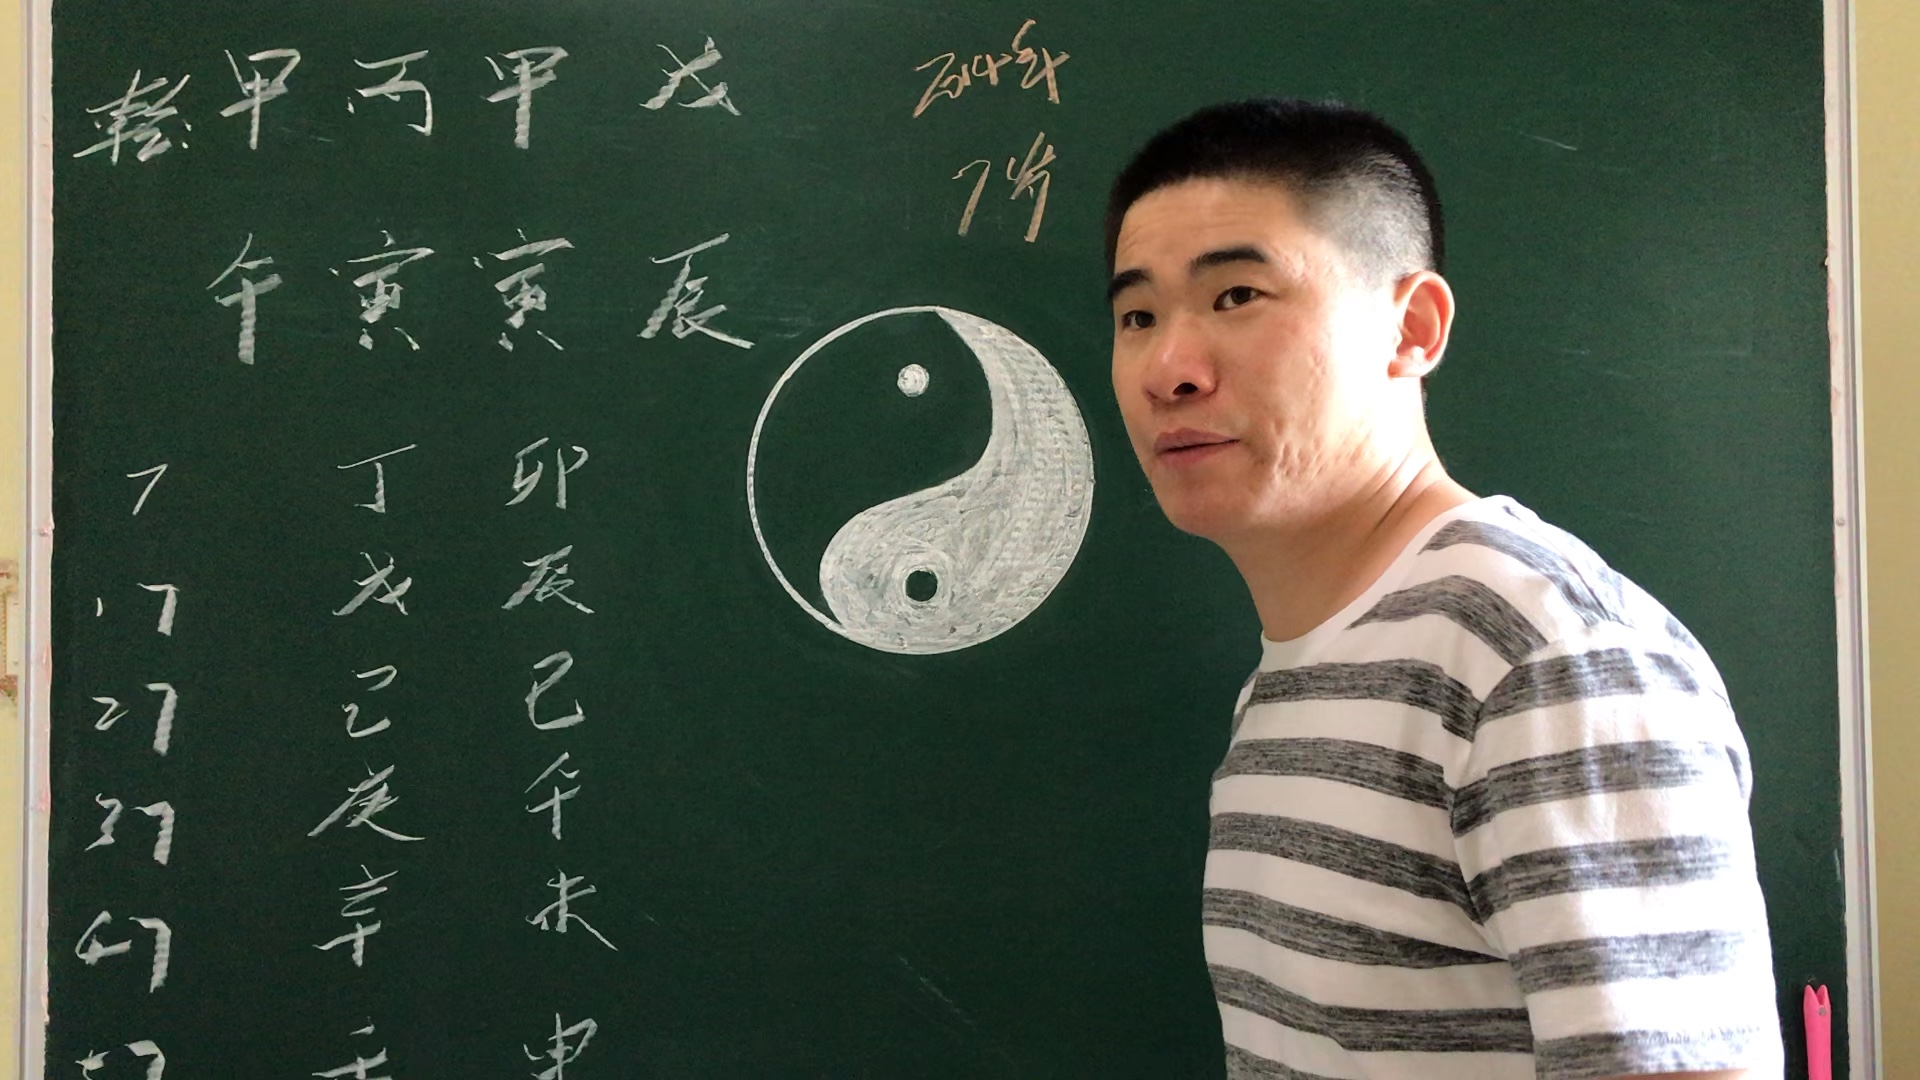 乾 甲 丙 甲 戊
午 寅 寅 辰
2014年
7岁
7 丁 卯
17 戊 辰
27 己 巳
37 庚 午
47 辛 未
57 壬 申